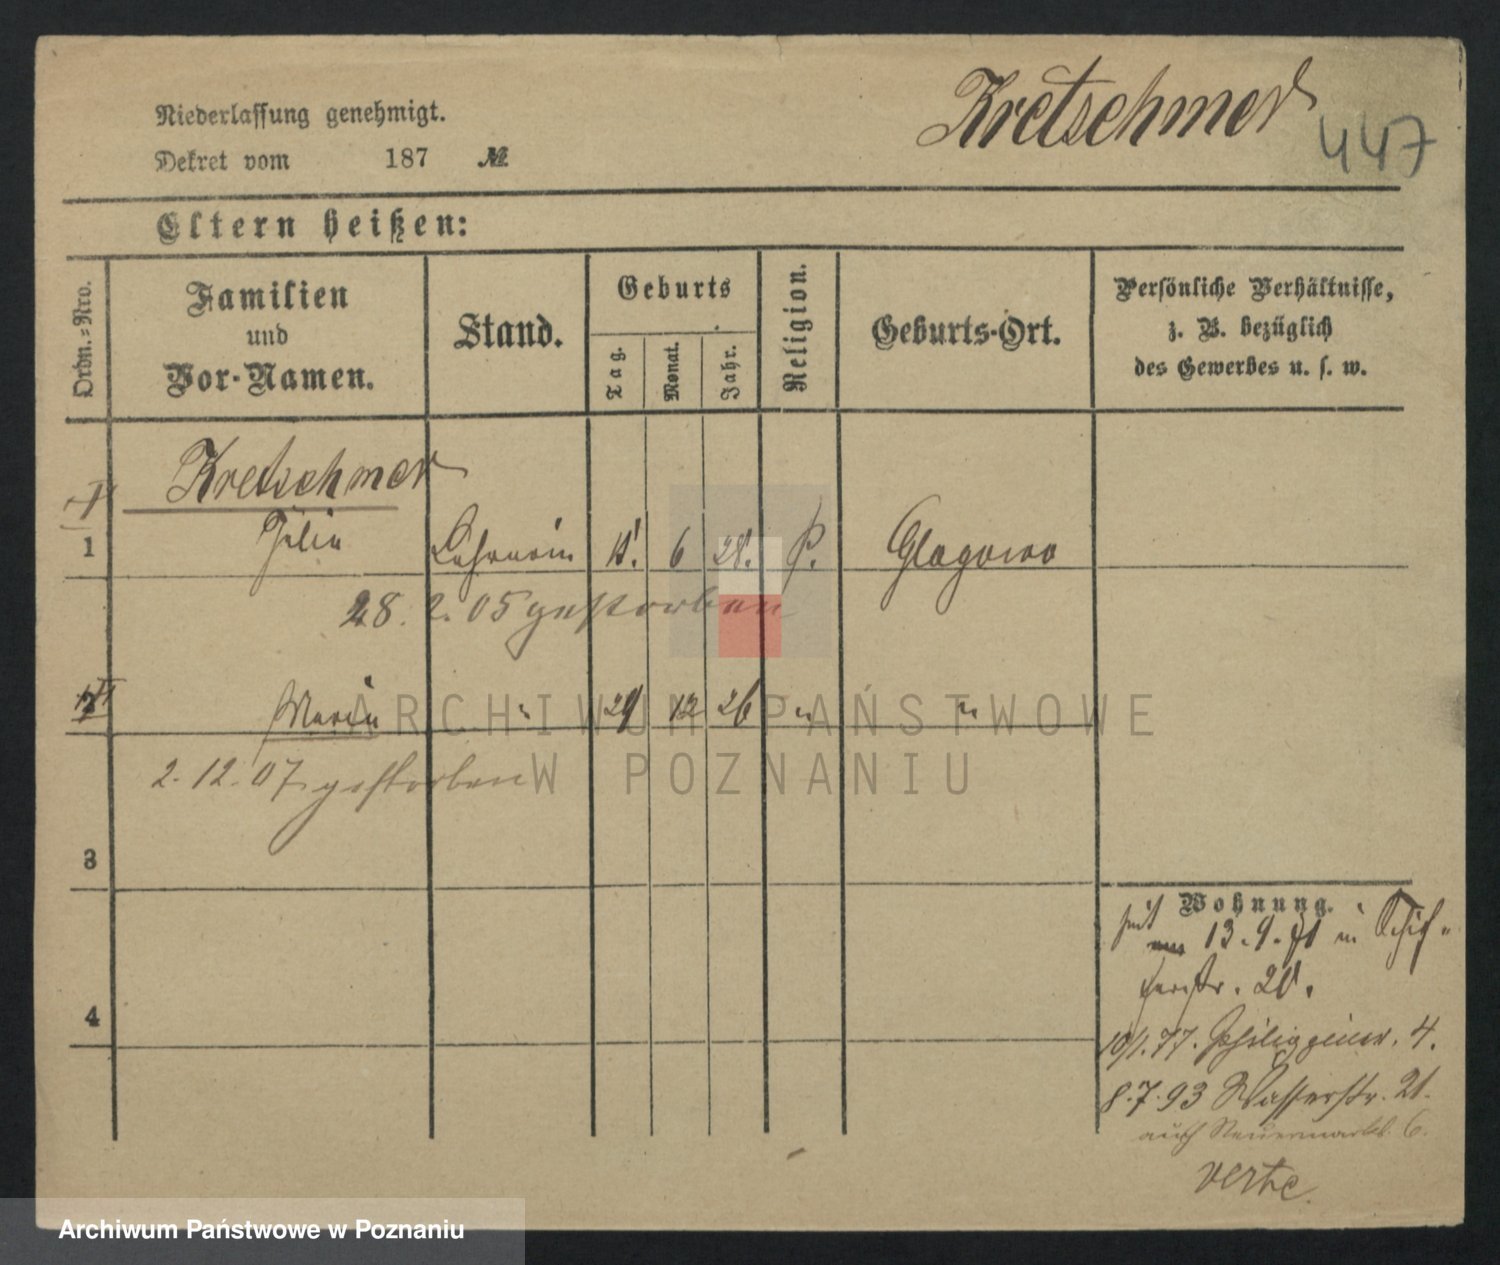 Kretschmer
447
Niederlassung genehmigt.
Dekret vom 187 №
Eltern heißen:
Ordn.-Nro.
Familien
und
Vor-Namen.
Stand.
Geburts
Tag.
Monat.
Jahr.
Religion.
Geburts-Ort.
Persönliche Verhältnisse,
z. B. bezüglich
des Gewerbes u. s. w.
Kretschmer
1 Lehrerin 6 28. Glagowo
28. 2. 05 gestorben
Maria " 12 26 " "
2. 12. 07 gestorben
3
4
Wohnung.
seit 13. 9. 71 in Schif-
ferstr. 20.
10/1. 77. 4.
8. 7. 93 Wasserstr. 21.
auch Neuermarkt. 6.
verte
ARCHIWUM PAŃSTWOWE
W POZNANIU
Archiwum Państwowe w Poznaniu